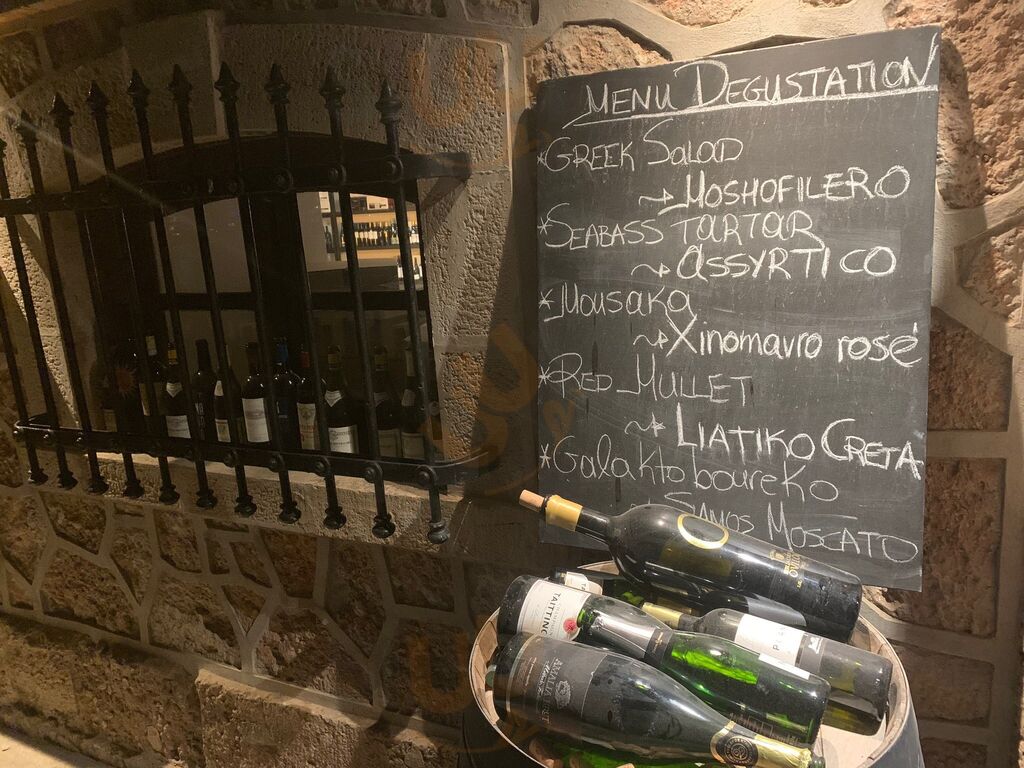 MENU DEGUSTATION
*GREEK SALAD
→MOSHOFILERO
*SEABASS TARTAR
→ASSYRTICO
*MOUSAKA
→Xinomavro rosé
*RED MULLET
→LIATIKO CRETA
*Galaktoboureko
→SAMOS MOSCATO
TAITTING
AMALIA